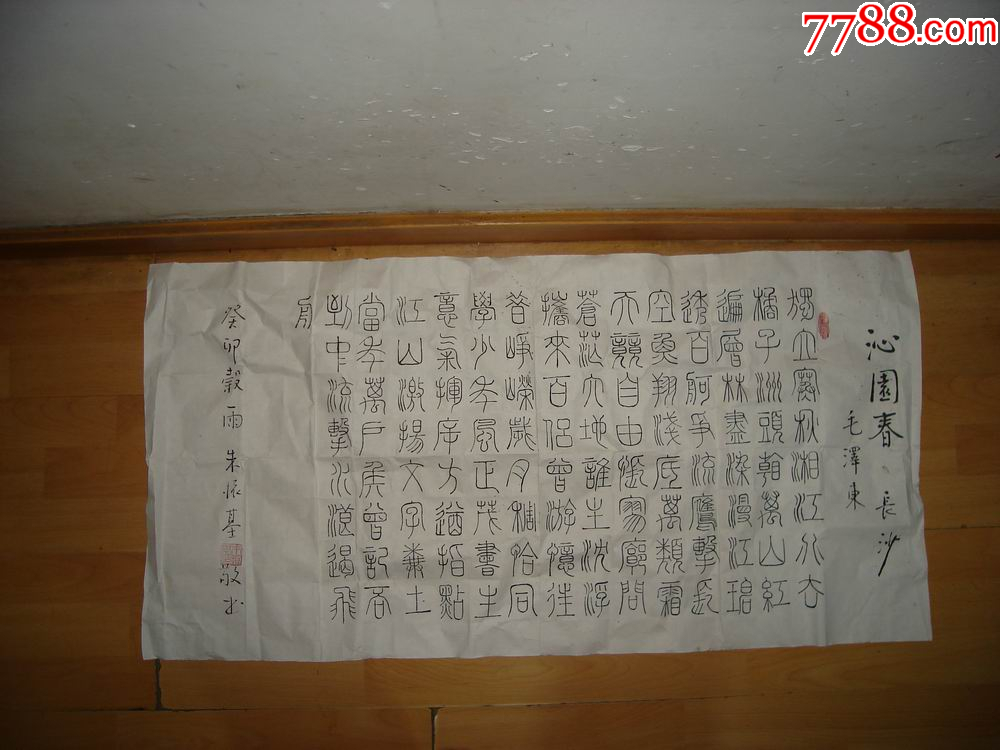 7788.com
沁園春、長沙
毛澤東
獨立寒秋湘江北去
橘子洲頭看萬山紅
遍層林盡染漫江碧
透百舸爭流鷹擊長
空魚翔淺底萬類霜
天競自由悵寥廓問
蒼茫大地誰主沈浮
攜來百侶曾游憶往
昔崢嶸歲月稠恰同
學少年風正茂書生
意氣揮斥方遒指點
江山激揚文字糞土
當年萬戶侯曾記否
到中流擊水浪遏飛
舟
癸卯穀雨 朱基敬书